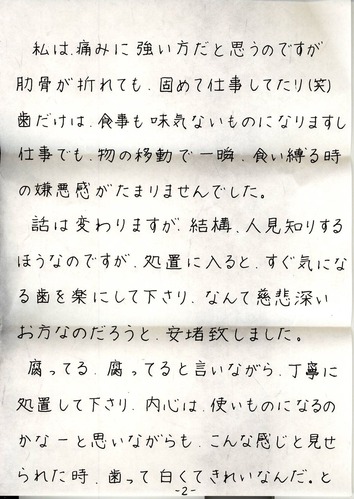 私は、痛みに強い方だと思うのですが
肋骨が折れても、固めて仕事してたり(笑)
歯だけは、食事も味気ないものになりますし
仕事でも、物の移動で一瞬、食い縛る時
の嫌悪感がたまりませんでした。
話は変わりますが、結構、人見知りする
ほうなのですが、処置に入ると、すぐ気にな
る歯を楽にして下さり、なんて慈悲深い
お方なのだろうと、安堵致しました。
腐ってる、腐ってると言いながら、丁寧に
処置して下さり、内心は、使いものになるの
かなーと思いながらも、こんな感じと見せ
られた時、歯って白くてきれいなんだ。と
-2-